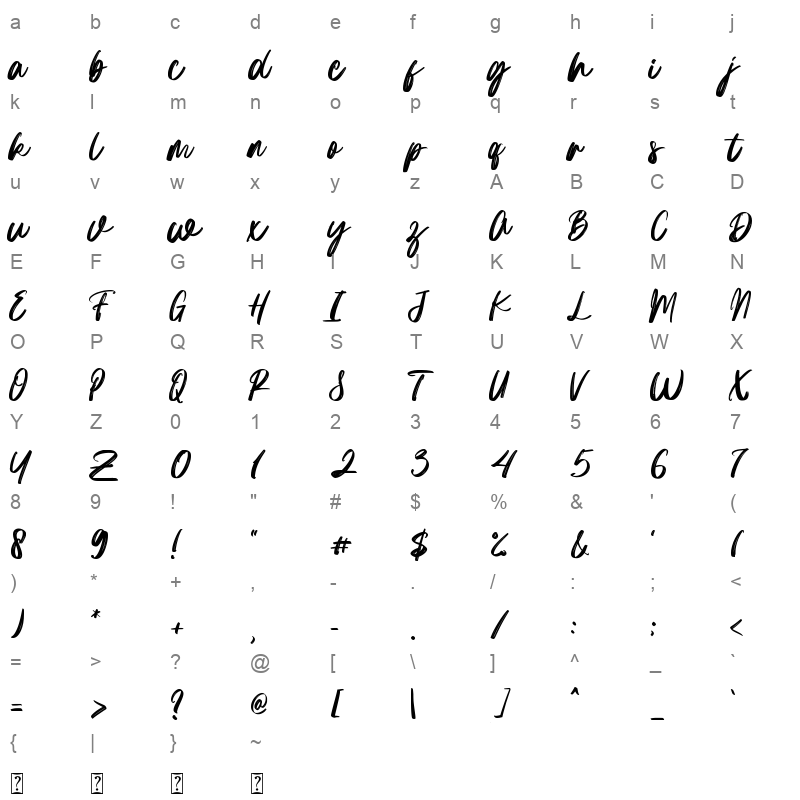 a b c d e f g h i j
a b c d e f g h i j
k l m n o p q r s t
k l m n o p q r s t
u v w x y z A B C D
u v w x y z A B C D
E F G H I J K L M N
E F G H I J K L M N
O P Q R S T U V W X
O P Q R S T U V W X
Y Z 0 1 2 3 4 5 6 7
Y Z 0 1 2 3 4 5 6 7
8 9 ! " # $ % & ' (
8 9 ! " # $ % & ' (
) * + , - . / : ; <
) * + , - . / : ; <
= > ? @ [ \ ] ^ _ `
= > ? @ [ \ ] ^ _ `
{ | } ~
? ? ? ?